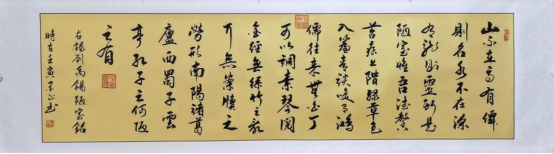 山不在高有僊
則名水不在深
有龍則靈斯是
陋室惟吾德馨
苔痕上階綠草色
入簾青談笑有鴻
儒往來無白丁
可以調素琴閱
金經無絲竹之亂
耳無案牘之
勞形南陽諸葛
廬西蜀子雲
亭孔子云何陋
之有
右錄劉禹錫陋室銘
時在壬寅